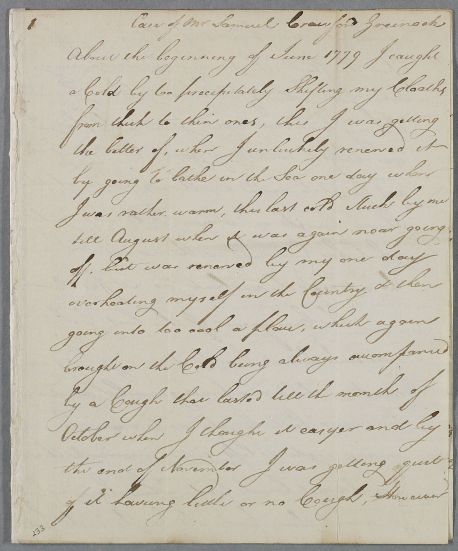 1
Case of Mr Samuel Crawford Greenock
About the beginning of June 1779 I caught
a Cold by too precipitately Shifting my Cloaths
from thick to thin ones, this I was getting
the better of, when I unluckily renewed it
by going to bathe in the Sea one day when
I was rather warm, this last cold Stuck by me
till August when it was again near going
off, but was renewed by my one day
overheating myself in the Country & then
going into too cool a place, which again
brought on the Cold being always accompanied
by a Cough that lasted till the month of
October when I thought it easyer and by
the end of November I was getting quit
of it having little or no Cough, However
233